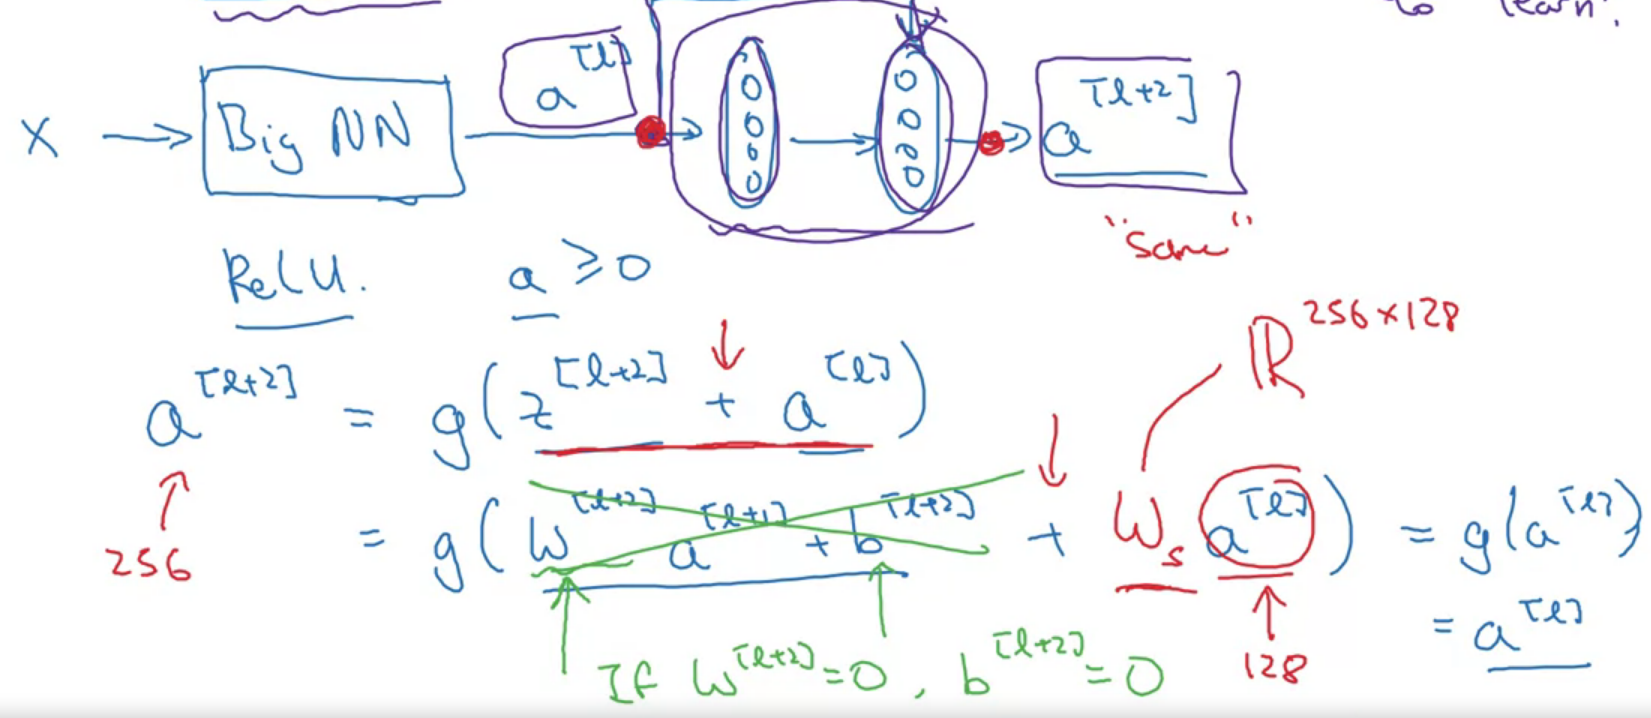 to learn!
a^[l]
X → Big NN → → a^[l+2]
"Same"
ReLU. a ≥ 0
ℝ^256×128
a^[l+2] = g(z^[l+2] + a^[l])
= g(W^[l+2] a^[l+1] + b^[l+2] + W_s a^[l]) = g(a^[l])
256
= a^[l]
If W^[l+2]=0, b^[l+2]=0
128